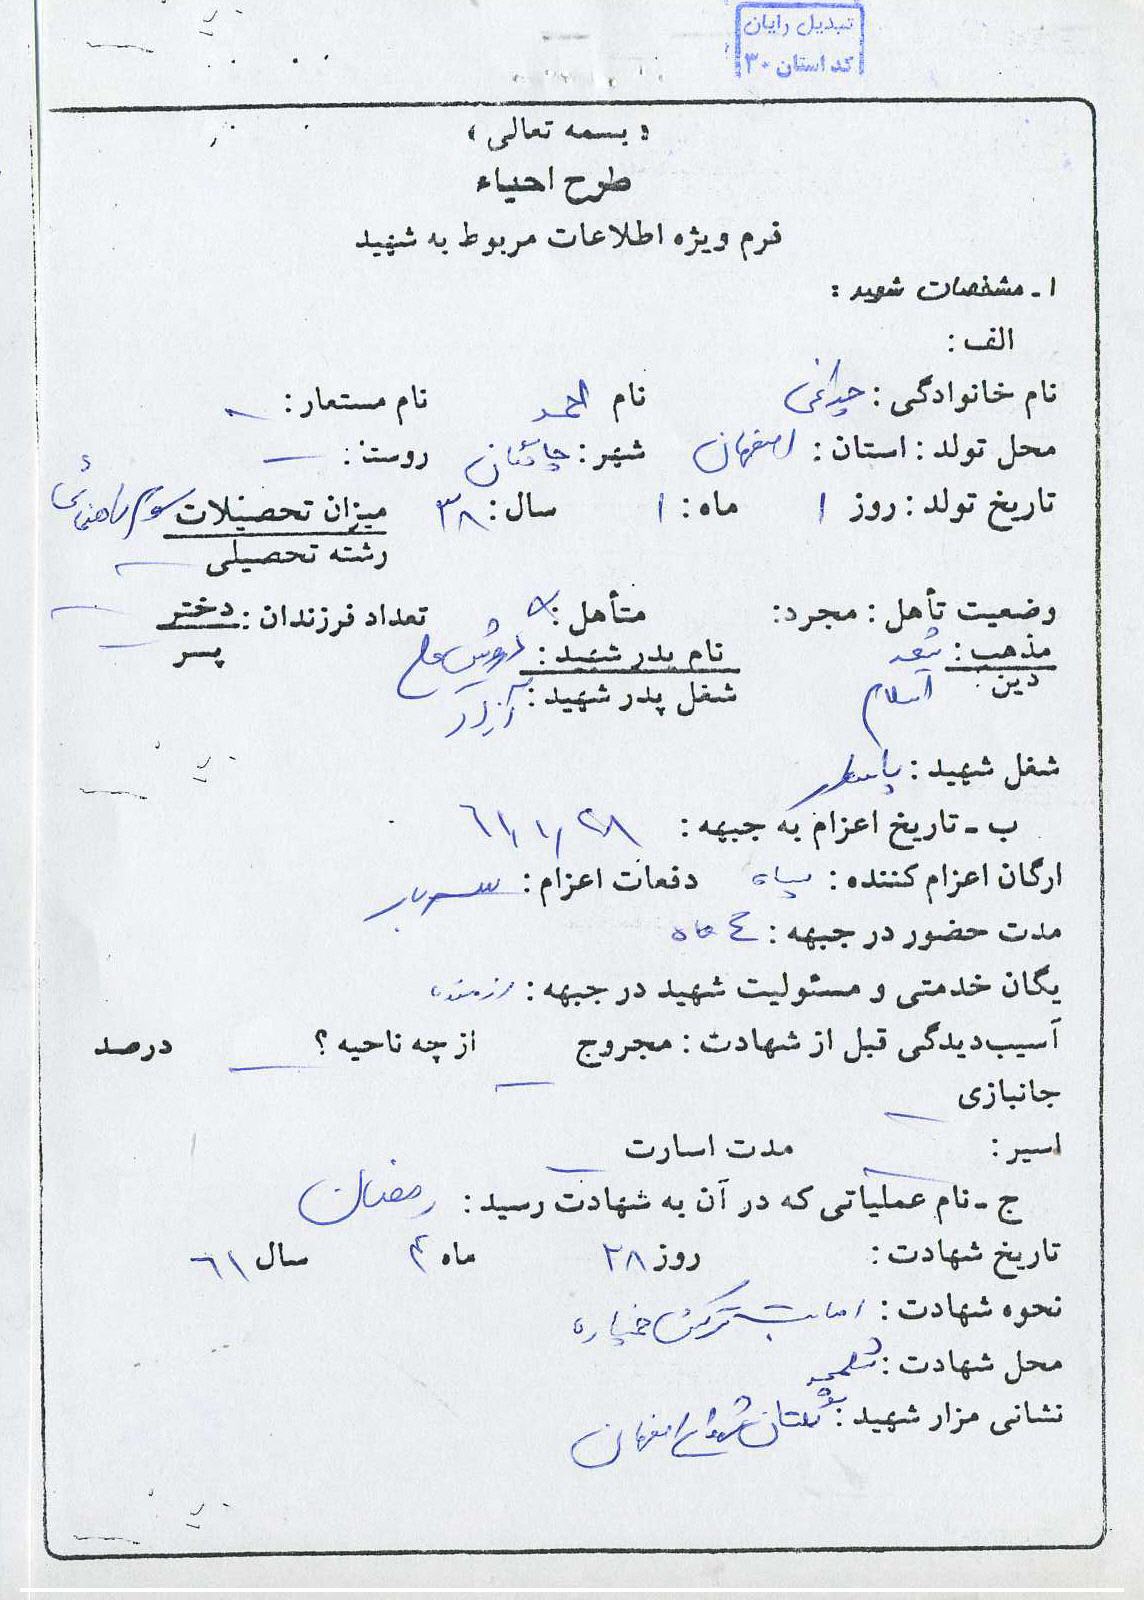 تبدیل رایان
کد استان ۳۰
« بسمه تعالی »
طرح احیاء
فرم ویژه اطلاعات مربوط به شهید
۱ ـ مشخصات شهید :
الف :
نام خانوادگی : چراغی نام احمد نام مستعار : ـ
محل تولد : استان : اصفهان شهر : روستا : ـ
تاریخ تولد : روز ۱ ماه : ۱ سال : ۳۸ میزان تحصیلات سوم راهنمائی
رشته تحصیلی ـ
وضعیت تأهل : مجرد : متأهل : تعداد فرزندان : دختر ـ
پسر ـ
مذهب : شیعه نام پدر شهید :
دین : اسلام شغل پدر شهید : آزاد
شغل شهید : پاسدار
ب ـ تاریخ اعزام به جبهه : ۶۱/۱/۲۸
ارگان اعزام کننده : سپاه دفعات اعزام :
مدت حضور در جبهه : ۴ ماه
یگان خدمتی و مسئولیت شهید در جبهه : رزمنده
آسیب‌دیدگی قبل از شهادت : مجروح ـ از چه ناحیه ؟ ـ درصد
جانبازی ـ
اسیر : ـ مدت اسارت ـ
ج ـ نام عملیاتی که در آن به شهادت رسید : رمضان
تاریخ شهادت : روز ۲۸ ماه ۴ سال ۶۱
نحوه شهادت : اصابت ترکش خمپاره
محل شهادت : شلمچه
نشانی مزار شهید : گلستان شهدای اصفهان